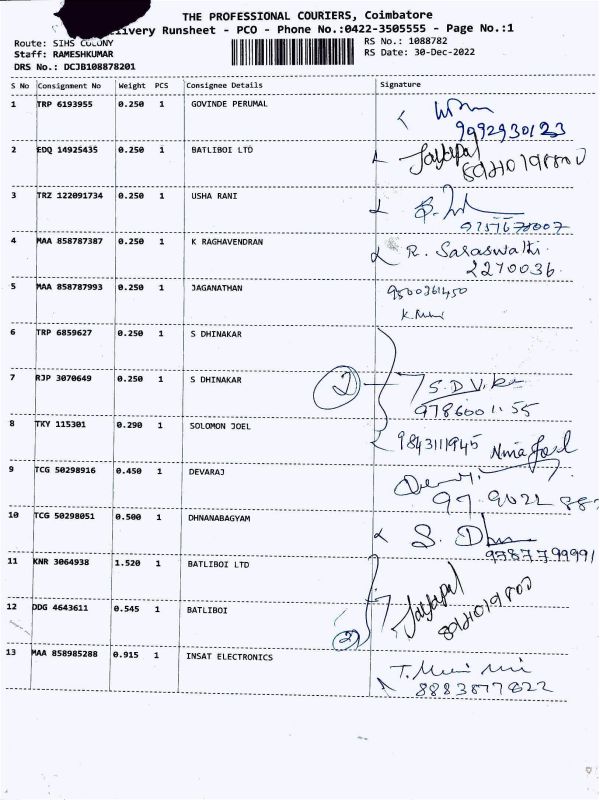 THE PROFESSIONAL COURIERS, Coimbatore
elivery Runsheet - PCO - Phone No.:0422-3505555 - Page No.:1
Route: SIHS COLONY
RS No.: 1088782
Staff: RAMESHKUMAR
RS Date: 30-Dec-2022
DRS No.: DCJB108878201
S No Consignment No Weight PCS Consignee Details Signature
1 TRP 6193955 0.250 1 GOVINDE PERUMAL
9992930123
2 EDQ 14925435 0.250 1 BATLIBOI LTD
Jayapal
3 TRZ 122091734 0.250 1 USHA RANI
4 MAA 858787387 0.250 1 K RAGHAVENDRAN
R. Saraswathi
2270036.
5 MAA 858787993 0.250 1 JAGANATHAN
9500361450
6 TRP 6859627 0.250 1 S DHINAKAR
7 RJP 3070649 0.250 1 S DHINAKAR
2
9786001155
8 TKY 115301 0.290 1 SOLOMON JOEL
9843111945
9 TCG 50298916 0.450 1 DEVARAJ
10 TCG 50298051 0.500 1 DHNANABAGYAM
9787799991
11 KNR 3064938 1.520 1 BATLIBOI LTD
12 DDG 4643611 0.545 1 BATLIBOI
2
Jayapal
13 MAA 858985288 0.915 1 INSAT ELECTRONICS
8883877822